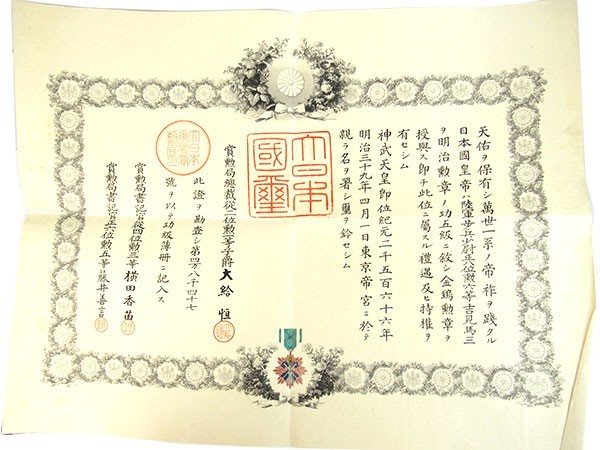 天佑ヲ保有シ萬世一系ノ帝祚ヲ踐タル
日本國皇帝ハ陸軍歩兵少尉正八位勲六等吉見馬三
ヲ明治勲章ノ功五級ニ敘シ金鵄勲章ヲ
授與ス即チ此位ニ屬スル禮遇及ヒ特權ヲ
有セシム
神武天皇即位紀元二千五百六十六年
明治三十九年四月一日東京帝宮ニ於テ
親ラ名ヲ署シ璽ヲ鈐セシム
大日本國璽
賞勲局總裁從二位勲一等子爵大給恒
此證ヲ勘査シ第四万八千四十七
號ヲ以テ功級簿册ニ記入ス
賞勲局書記官從四位勲三等横田香苗
賞勲局書記官正六位勲五等藤井善言